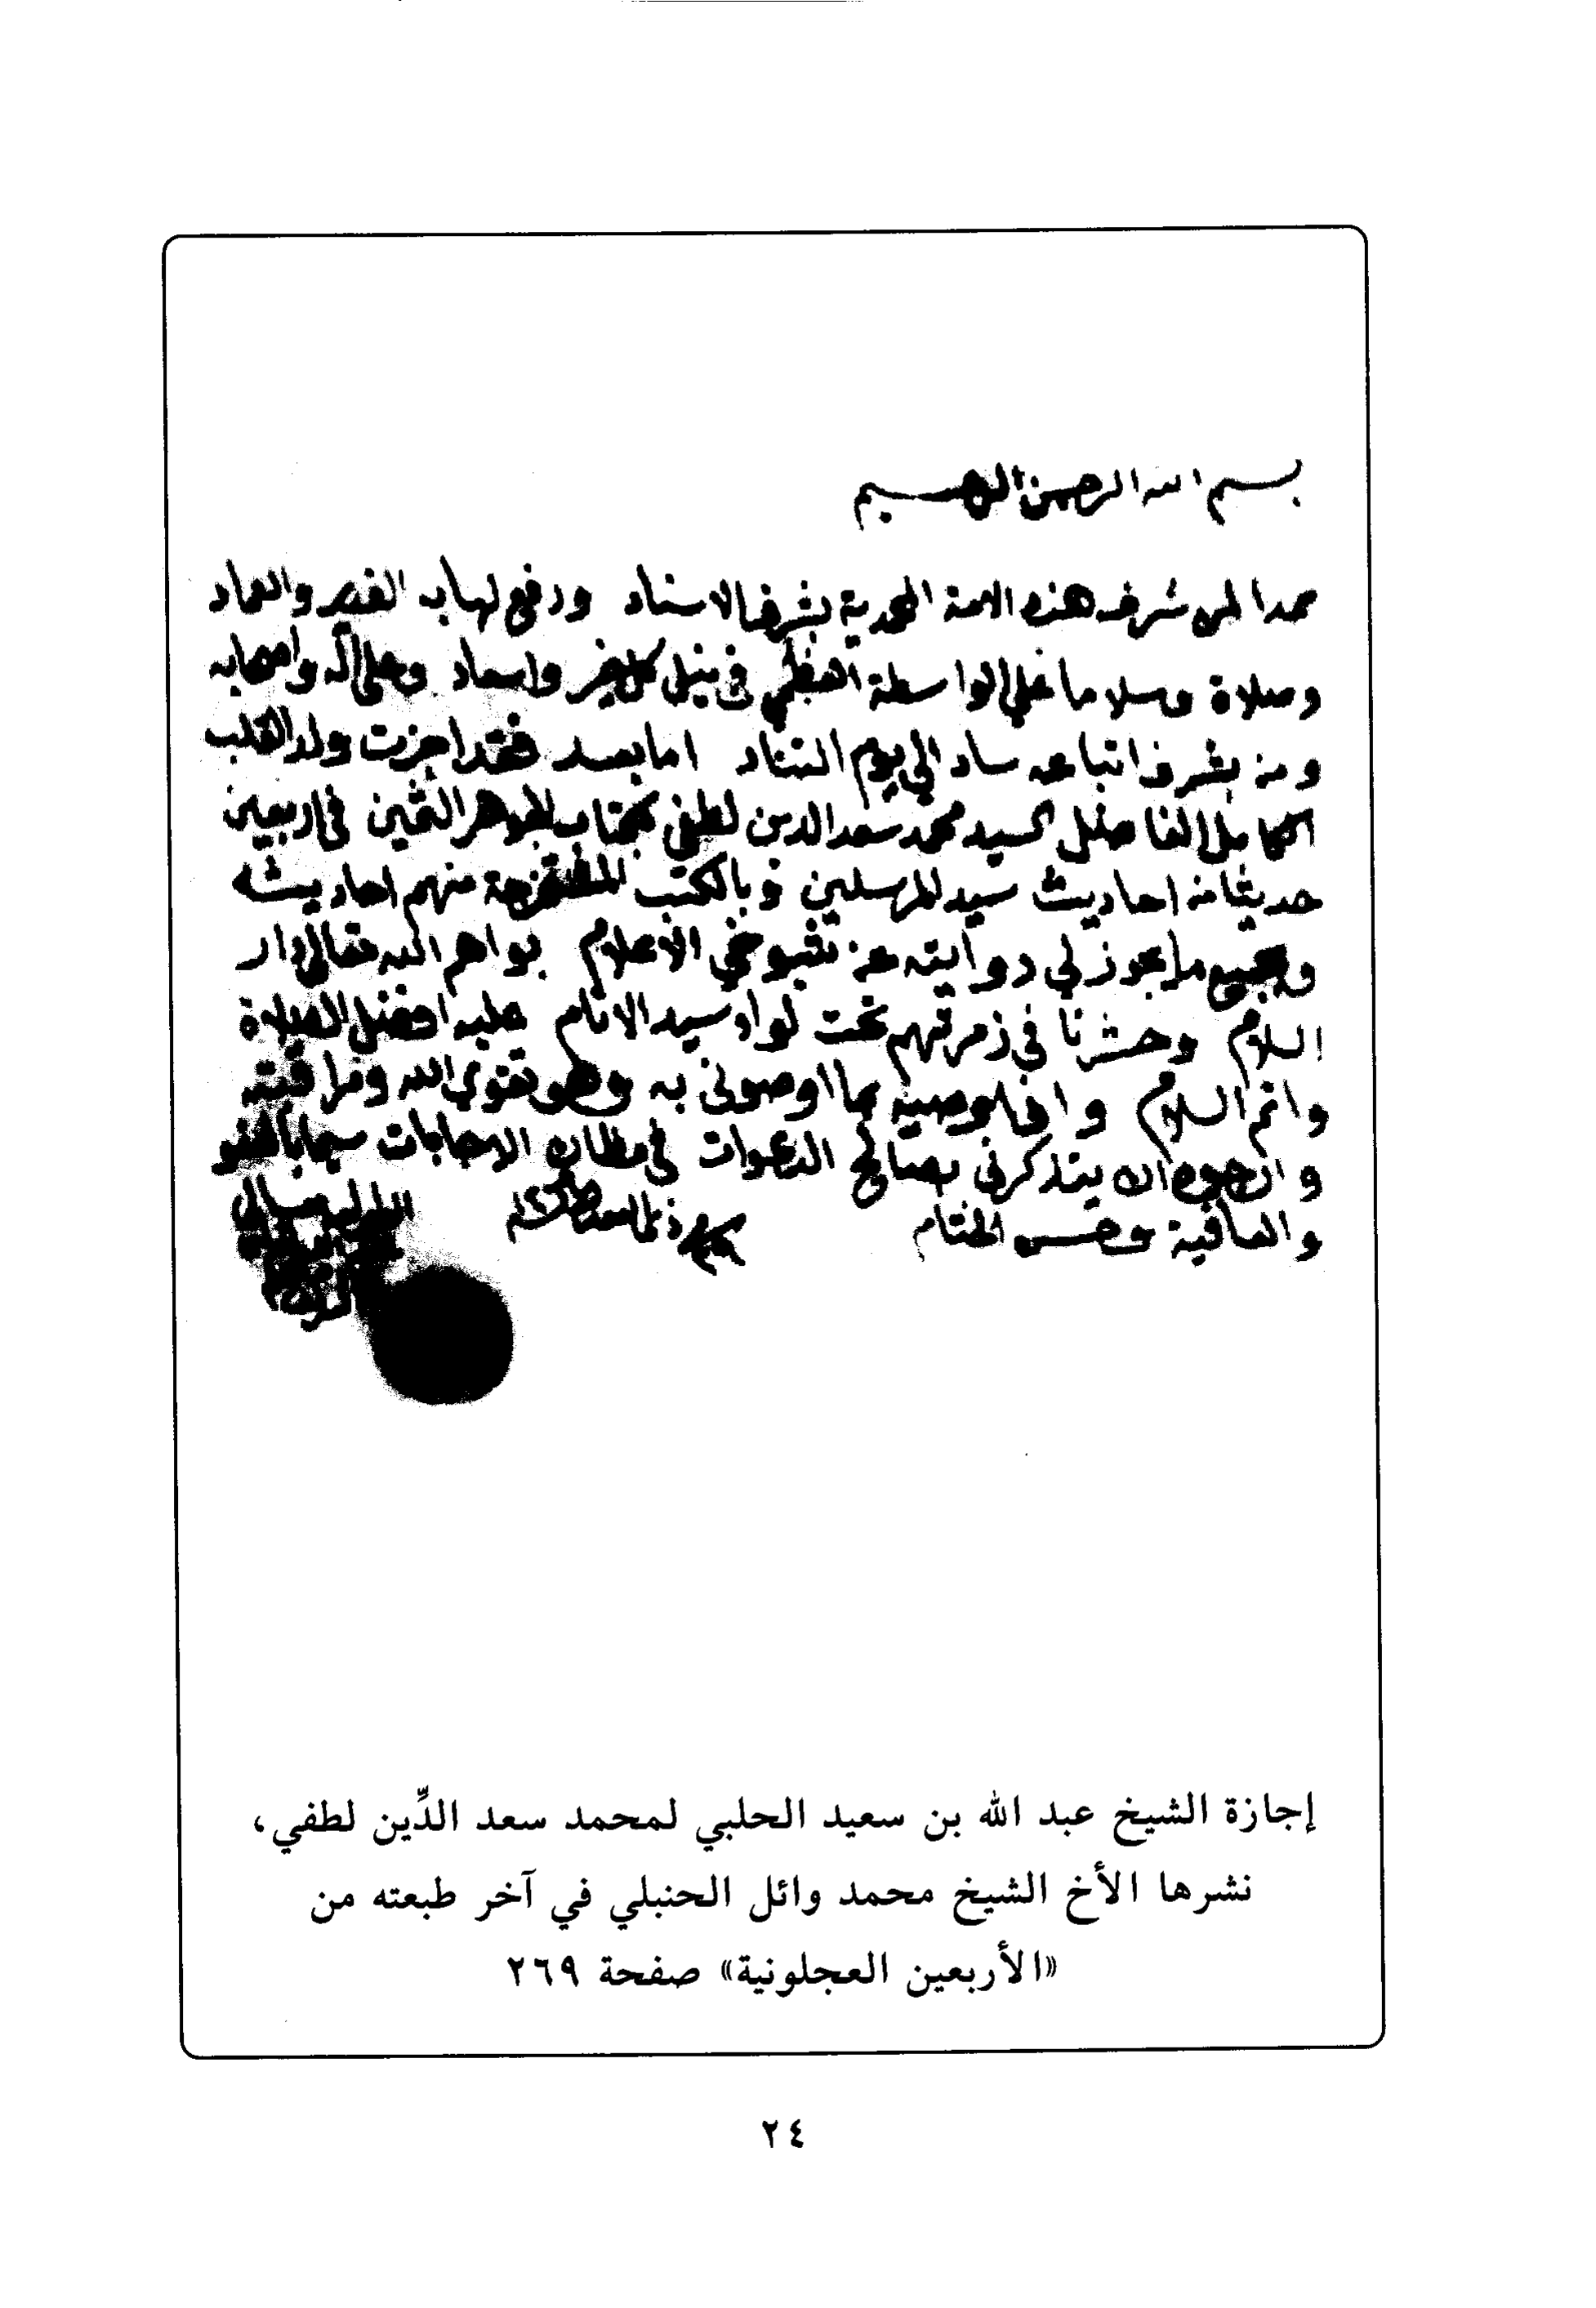 بسم الله الرحمن الرحيم
حمدا لمن شرف هذه الامة المحمدية بشرف الاسناد ورفع لها به القدر والعماد
وصلاة وسلاما على الواسطة العظمى في نيل كل خير واسعاد وعلى آله واصحابه
ومن بشرف اتباعه ساد الى يوم التناد اما بعد فقد اجزت ولد القلب
الكامل الفاضل السيد محمد سعد الدين لطفي بكتاب الجوهر الثمين في اربعين
حديثا من احاديث سيد المرسلين وبالكتب المستخرجة منهم احاديثه
وبجميع ما يجوز لي روايته عن شيوخي الاعلام بواهم الله تعالى دار
السلام وحشرنا في زمرتهم تحت لواء سيد الانام عليه افضل الصلاة
واتم السلام واني اوصيه بما اوصوني به وهو تقوى الله ومراقبته
وارجوه ان يتذكرني بصالح الدعوات في مظان الاجابات سيما بالعفو
والعافية وحسن الختام
إجازة الشيخ عبد الله بن سعيد الحلبي لمحمد سعد الدِّين لطفي،
نشرها الأخ الشيخ محمد وائل الحنبلي في آخر طبعته من
«الأربعين العجلونية» صفحة ٢٦٩
٢٤